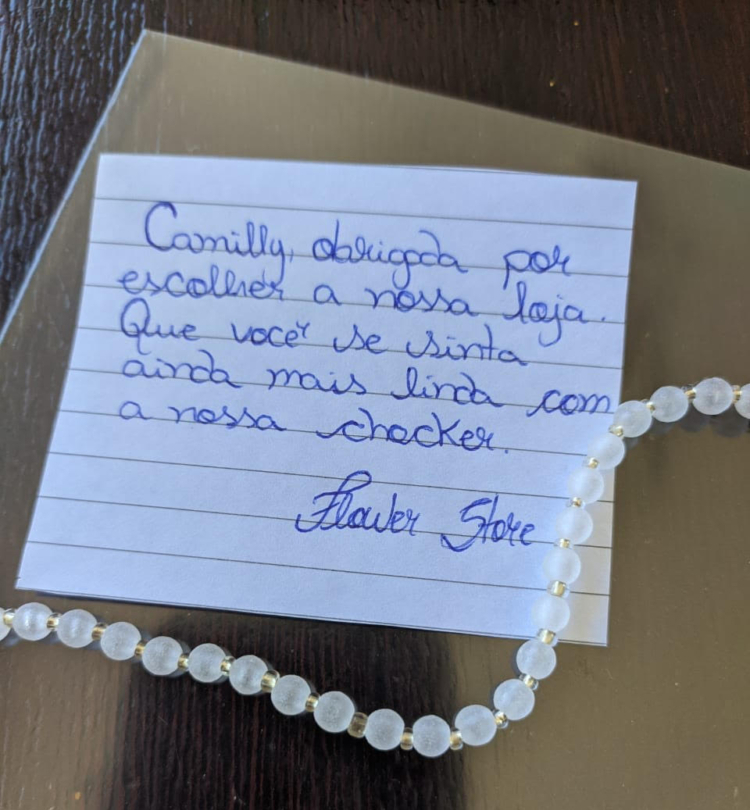 Camilly, obrigada por
escolher a nossa loja.
Que você se sinta
ainda mais linda com
a nossa chocker.
Flower Store